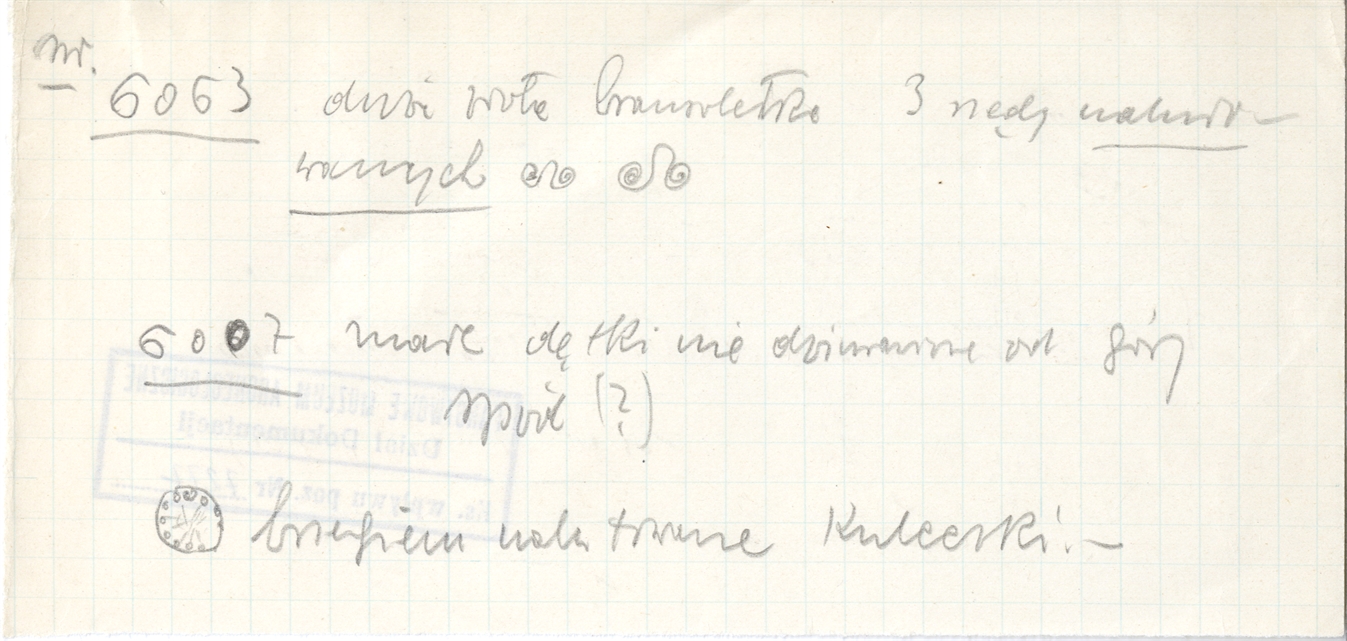 nr.
6063 duża złota bransoletka 3 rzędy naluto-
wanych
6007 małe dętki nie dziurawione od góry
spód (?)
brzegiem nalutowane kuleczki. –
PAŃSTWOWE MUZEUM ARCHEOLOGICZNE
Dział Dokumentacji
Ks. wpływu poz. Nr